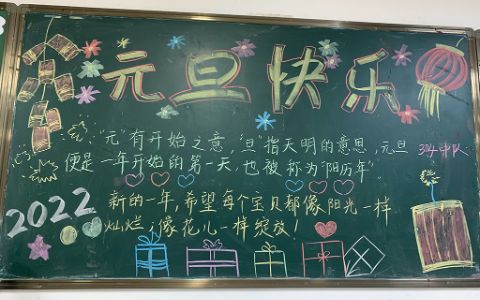 元旦快乐
"元"有开始之意,"旦"指天明的意思,元旦
便是一年开始的第一天,也被称为"阳历年"
314中队
2022
新的一年,希望每个宝贝都像阳光一样
灿烂,像花儿一样绽放!